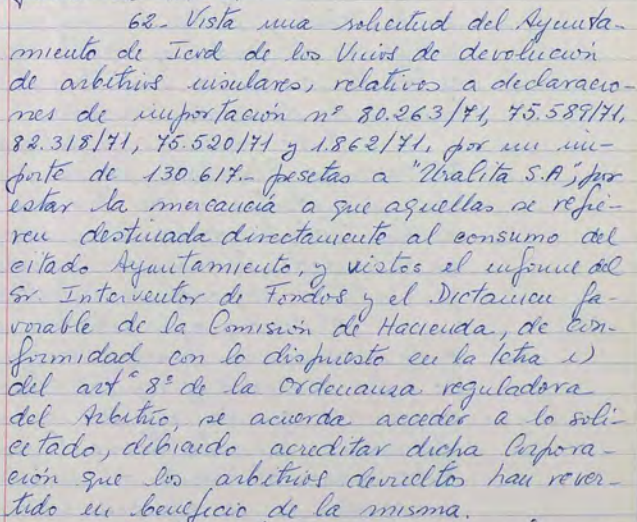 62.- Vista una solicitud del Ayunta-
miento de Icod de los Vinos de devolución
de arbitrios insulares, relativos a declaracio-
nes de importación nº 80.263/71, 75.589/71,
82.318/71, 75.520/71 y 1.862/71, por un im-
porte de 130.617.- pesetas a "Uralita S.A", por
estar la mercancía a que aquellas se refie-
ren destinada directamente al consumo del
citado Ayuntamiento, y vistos el informe del
Sr. Interventor de Fondos y el Dictamen fa-
vorable de la Comisión de Hacienda, de con-
formidad con lo dispuesto en la letra i)
del artº 8º de la Ordenanza reguladora
del Arbitrio, se acuerda acceder a lo soli-
citado, debiendo acreditar dicha Corpora-
ción que los arbitrios devueltos han rever-
tido en beneficio de la misma.